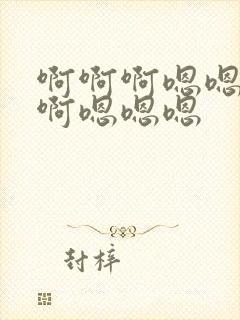 啊啊啊嗯嗯
啊嗯嗯嗯
封梓